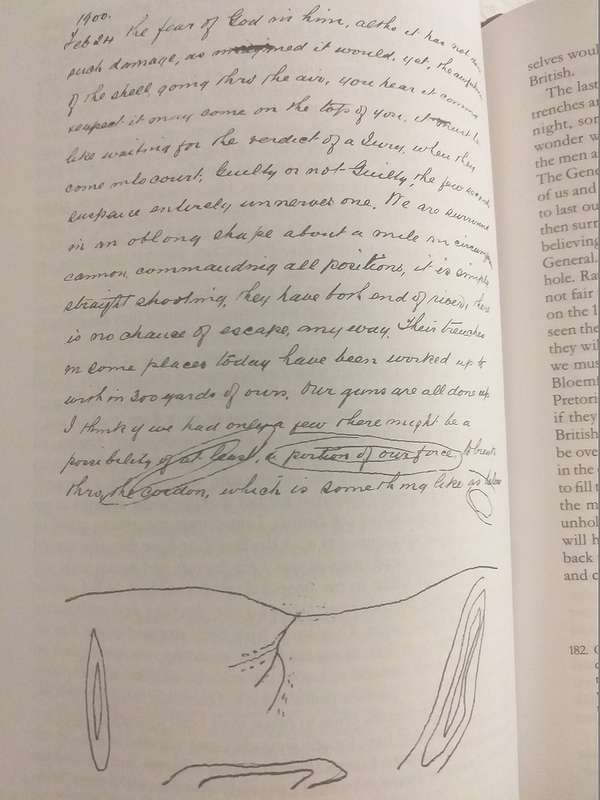 1900.
Feb 24 the fear of God in him, altho it has not
such damage, as it would, yet, the
of the shell, going thro the air, you hear it coming
& expect it may come on the top of you, it must be
like waiting for the verdict of a Jury, when they
come into court, Guilty or not Guilty, the few seconds
suspence entirely unnerves one. We are
in an oblong shape about a mile in
cannon, commanding all positions, it is simply
straight shooting, they have both end of river, there
is no chance of escape, any way. Their trenches
in some places today have been worked up to
with in 300 yards of ours. Our guns are all done up
I think if we had only a few there might be a
possibility of at least, a portion of our force, to break
thro, the cordon, which is something like as below
selves woul
British.
The last
trenches a
night, so
wonder w
the men a
The Gene
of us and
to last ou
then surr
believing
General.
hole. Ra
not fair
on the l
seen the
they wil
we mus
Bloemf
Pretori
if they
British
be ove
in the
to fill t
the m
unhol
will h
back
and c
182.